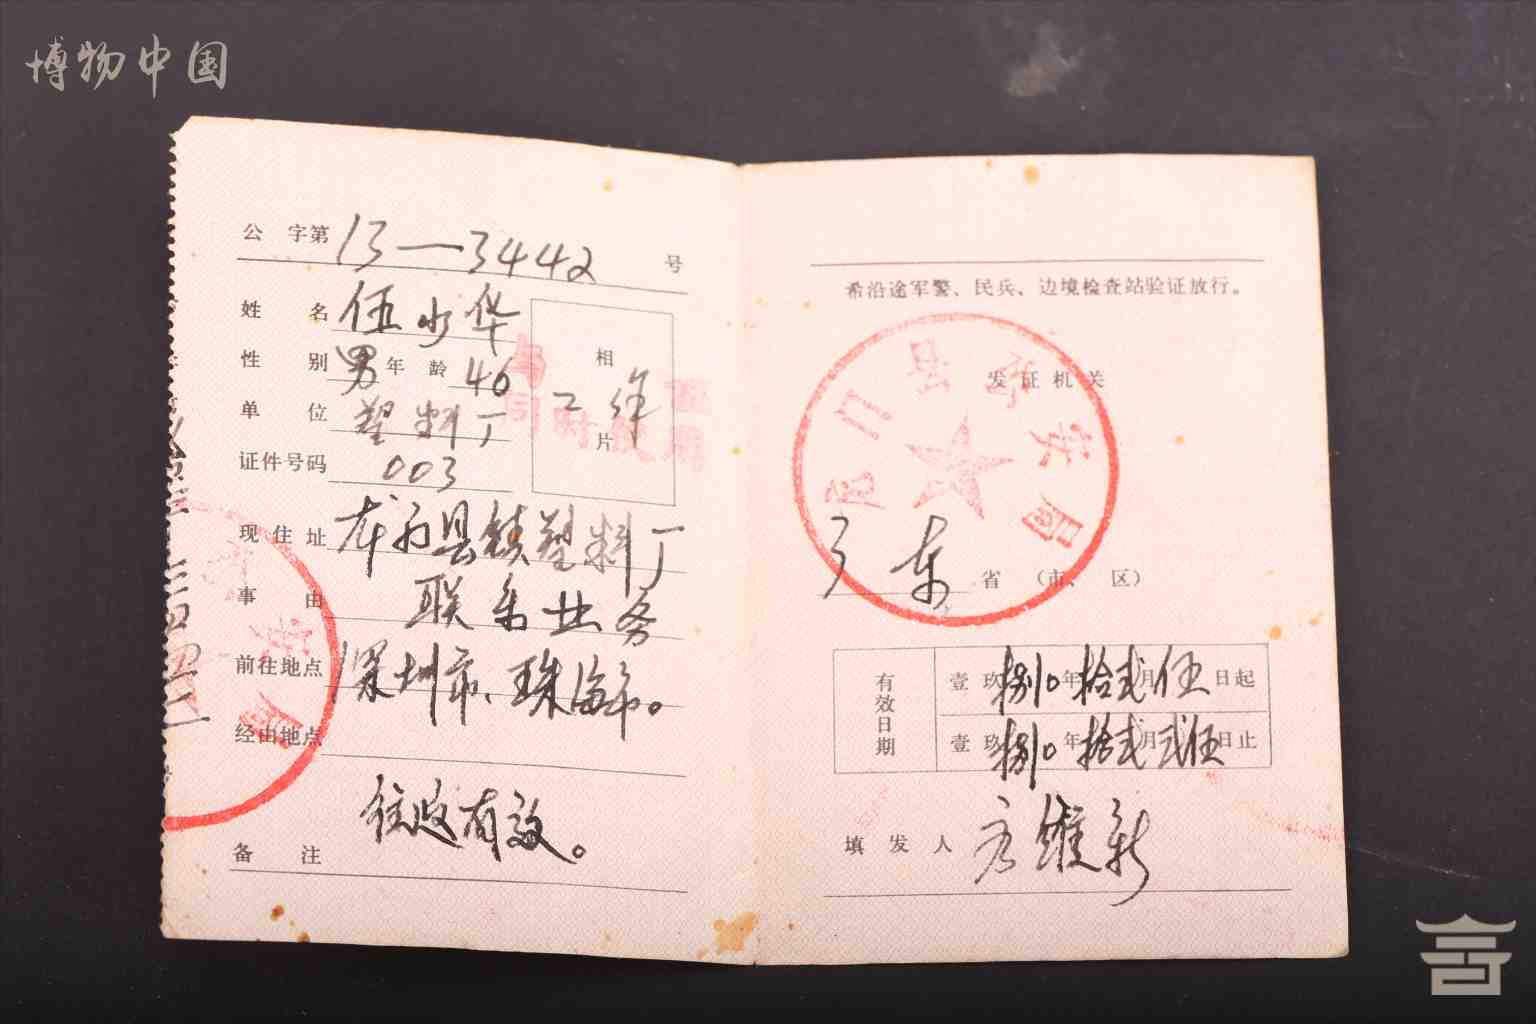 博物中国
公 字第 13—3442 号
姓 名 伍少华
性 别 男 年 龄 46
单 位 塑料厂
证件号码 003
相片
工作
与 证
同时使用
现住址 龙门县镇塑料厂
事 由 联系业务
前往地点 深圳市、珠海市。
经由地点
备 注 往返有效。
希沿途军警、民兵、边境检查站验证放行。
发证机关
龙门县公安局
广东 省 (市、 区)
有效日期
壹玖捌〇年拾贰月伍日起
壹玖捌〇年拾贰月贰伍日止
填发人 维新